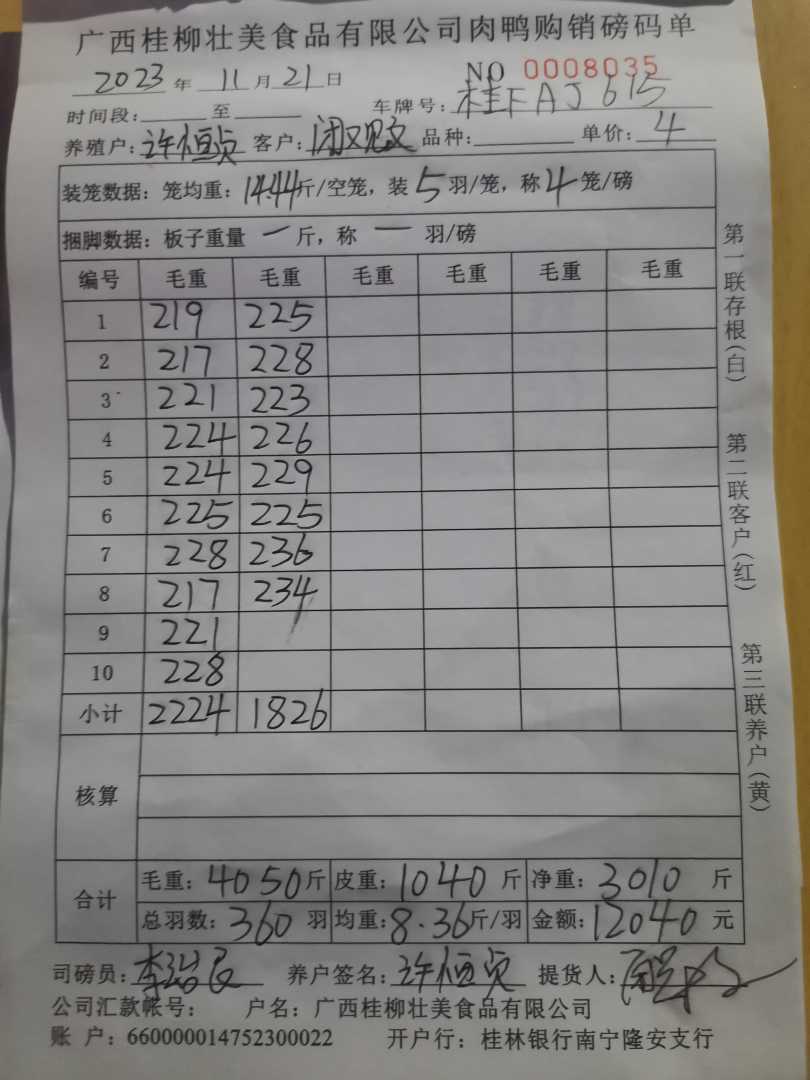 广西桂柳壮美食品有限公司肉鸭购销磅码单
2023 年 11 月 21 日 NO 0008035
时间段: 至 车牌号: 桂FAJ615
养殖户: 许恒贞 客户: 品种: 单价: 4
装笼数据: 笼均重: 14.44斤/空笼, 装 5 羽/笼, 称 4 笼/磅
捆脚数据: 板子重量 一 斤, 称 一 羽/磅
编号 毛重 毛重 毛重 毛重 毛重 毛重
1 219 225
2 217 228
3 221 223
4 224 226
5 224 229
6 225 225
7 228 236
8 217 234
9 221
10 228
小计 2224 1826
核算
合计
毛重: 4050 斤 皮重: 1040 斤 净重: 3010 斤
总羽数: 360 羽 均重: 8.36 斤/羽 金额: 12040 元
司磅员: 养户签名: 许恒贞 提货人:
公司汇款帐号: 户名: 广西桂柳壮美食品有限公司
账 户: 660000014752300022 开户行: 桂林银行南宁隆安支行
第一联存根(白)
第二联客户(红)
第三联养户(黄)